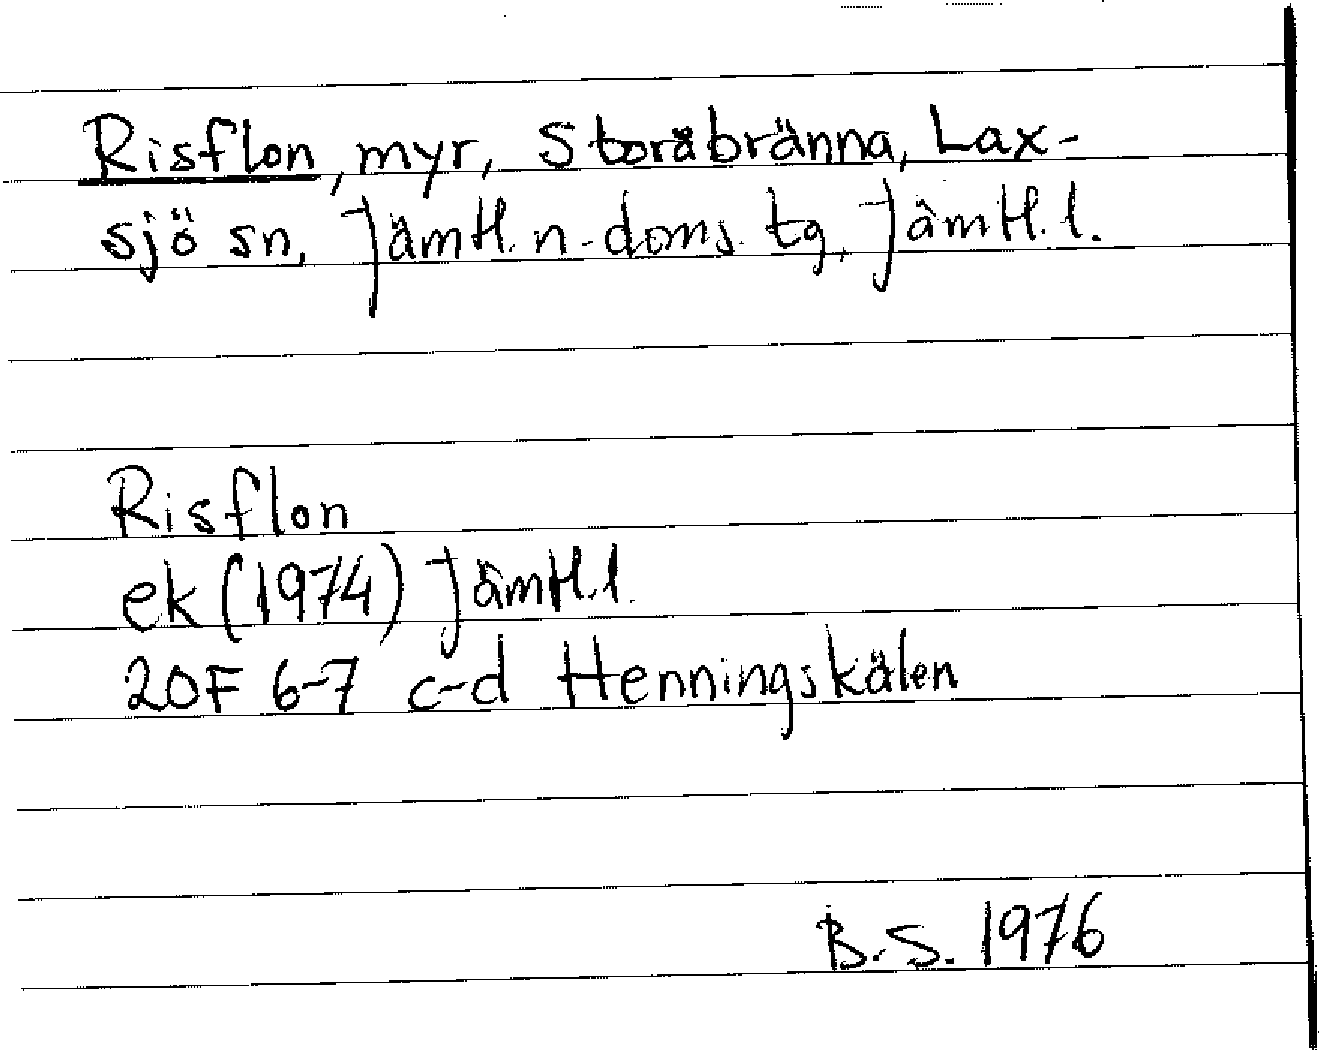 Risflon, myr, Storåbränna, Lax-
sjö sn, Jämtl. n. doms. tg, Jämtl. l.
Risflon
ek (1974) Jämtl. l.
20F 6-7 c-d Henningskälen
B.S. 1976